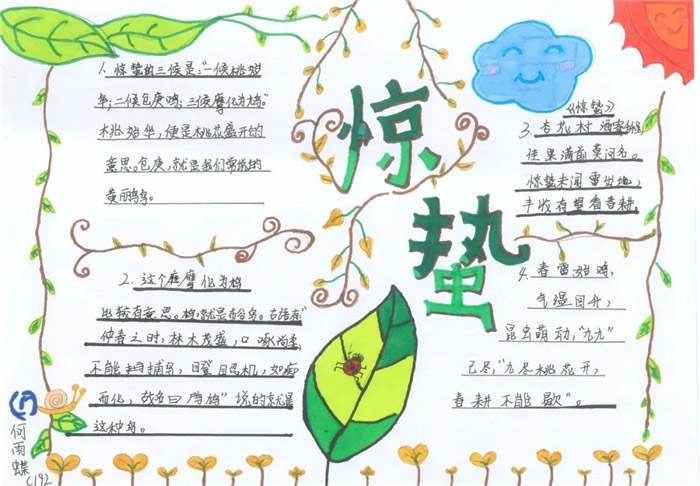 惊蛰
1、惊蛰的三候是:"一候桃始
华;二候仓庚鸣;三候鹰化为鸠。"
桃始华,便是桃花盛开的
意思。仓庚,就是我们常说的
黄丽鸟。
2、这个雁鹰化为鸠
比较有意思。鸠就是布谷鸟。古语有"
仲春之时,林木茂盛,口啄尚柔,
不能捕鸟,瞪目忍饥,如痴
而化,故名曰鸤鸠"说的就是
这种鸟。
《惊蛰》
3、杏花村酒寄
佳果满前莫问名。
惊蛰未闻雷出地,
丰收有望看春耕。
4、春雷始鸣,
气温回升,
昆虫萌动,"九九"
已尽,"九尽桃花开,
春耕不能歇"。
何雨蝶
C192